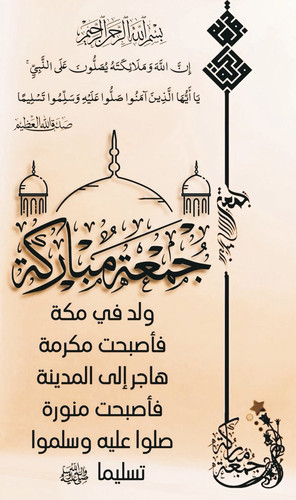 بسم الله الرحمن الرحيم
إِنَّ اللَّهَ وَمَلَائِكَتَهُ يُصَلُّونَ عَلَى النَّبِيِّ ۚ
يَا أَيُّهَا الَّذِينَ آمَنُوا صَلُّوا عَلَيْهِ وَسَلِّمُوا تَسْلِيمًا
صدق الله العظيم
جمعة
جُمعَة مُبَاركة
ولد في مكة
فأصبحت مكرمة
هاجر إلى المدينة
فأصبحت منورة
صلوا عليه وسلموا
تسليما ﷺ
جمعة مباركة